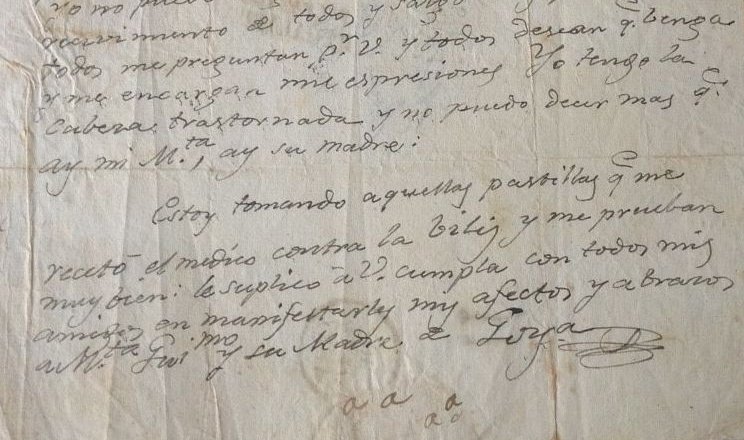 yo no puedo todos y
recivimiento a todos y
todos me preguntan p.r V. y todos desean q.e benga
y me encargan mil espresiones Yo tengo la
Cabeza trastornada y no puedo decir mas q.e
ay mi M.ta, ay su madre:
Estoy tomando aquellas pastillas q.e me
recetó el medico contra la bilis y me prueban
muy bien: le suplico a V. cumpla con todos mis
amigos en manifestarles mis afectos y abrazos
a M.ta Gui.mo y su Madre. de Goya
a a a a